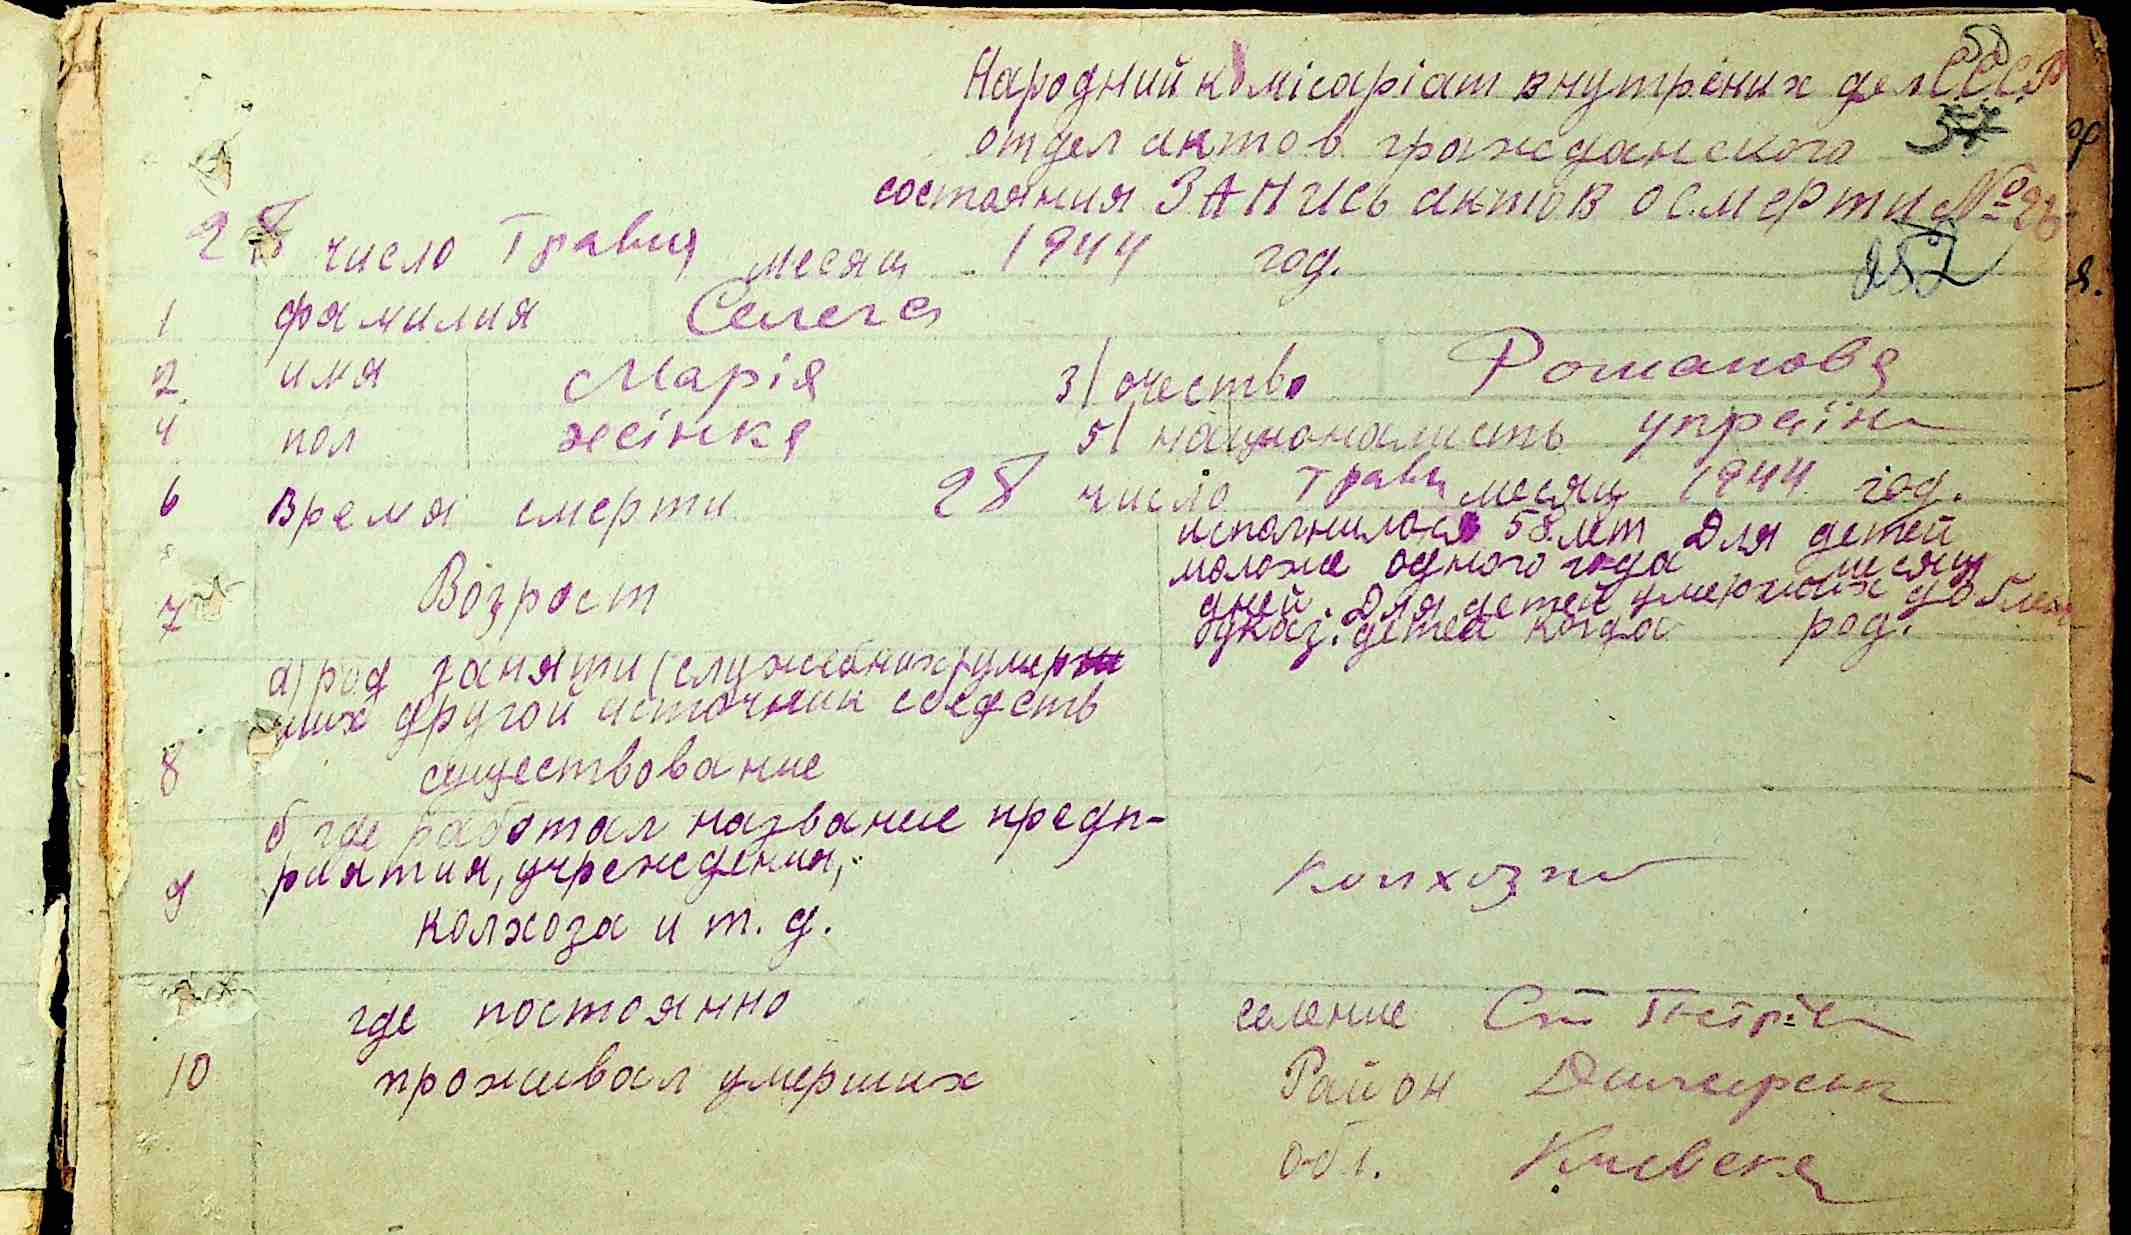 Народний комісаріат внутрених дел СССР
57
отдел актов гражданского
состояния ЗАПись актов о смерти №
252
28 число Травня месяц 1944 год.
1 фамилия Селега
2 имя Марія 3/ очество Романова
4 пол жінка 5/ национальность україн
6 время смерти 28 число Травн месяц 1944 год.
7 Возраст
исполнилося 58 лет Для детей
моложе одного года месяц
дней. Для детей умерших до
указ. детей когда род.
а) род заняти (служебних) умер
ших другой источник сбедств
8 существование
б где работал название предп-
9 риятия, учреждения,
колхоза и т. д.
Колхозн
10 где постоянно
проживал умерших
селение Ст Петрів
Район Димерськ
Обл. Київська